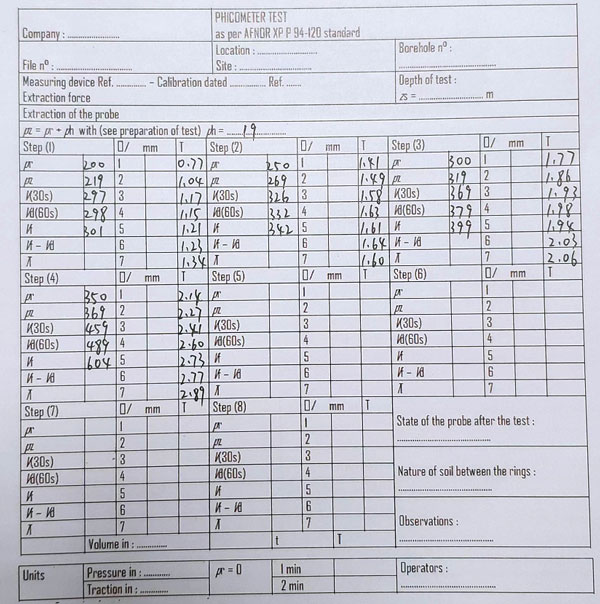 PHICOMETER TEST
Company : ............... as per AFNOR XP P 94-120 standard
Location : ............... Borehole n° :
File n° : ............... Site : ...............
Measuring device Ref. ............ - Calibration dated ............ Ref. ...... Depth of test :
Extraction force zs = ............... m
Extraction of the probe
with (see preparation of test) ph = ......19......
Step (1) mm T Step (2) mm T Step (3) mm T
pr 200 1 0.77 pr 250 1 1.41 pr 300 1 1.77
219 2 1.04 269 2 1.49 319 2 1.86
(30s) 297 3 1.17 (30s) 326 3 1.58 (30s) 369 3 1.93
(60s) 298 4 1.15 (60s) 332 4 1.63 (60s) 379 4 1.98
301 5 1.21 342 5 1.61 399 5 1.94
6 1.23 6 1.64 6 2.03
7 1.34 7 1.60 7 2.06
Step (4) mm T Step (5) mm T Step (6) mm T
pr 350 1 2.14 pr 1 pr 1
369 2 2.27 2 2
(30s) 459 3 2.41 (30s) 3 (30s) 3
(60s) 489 4 2.60 (60s) 4 (60s) 4
604 5 2.73 5 5
6 2.77 6 6
7 2.89 7 7
Step (7) mm T Step (8) mm T State of the probe after the test :
pr 1 pr 1
2 2
(30s) 3 (30s) 3 Nature of soil between the rings :
(60s) 4 (60s) 4
5 5
6 6 Observations :
7 7
Volume in : ............ t T
Units Pressure in : ......... pr = 0 1 min Operators :
Traction in : ......... 2 min